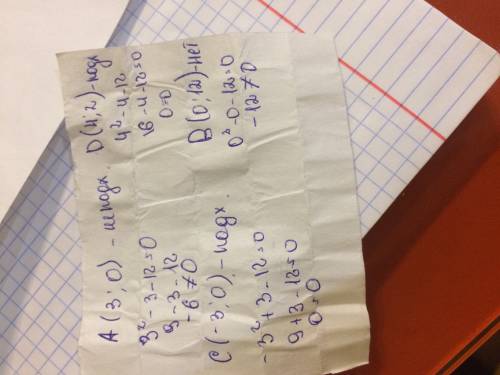 A (3; 0) - не подх.
3² - 3 - 12 = 0
9 - 3 - 12
-6 ≠ 0
C (-3; 0) - подх.
-3² + 3 - 12 = 0
9 + 3 - 12 = 0
0 = 0
D (4; 2) - подх
4² - 4 - 12
16 - 4 - 12 = 0
0 = 0
B (0; 12) - нет
0² - 0 - 12 = 0
-12 ≠ 0